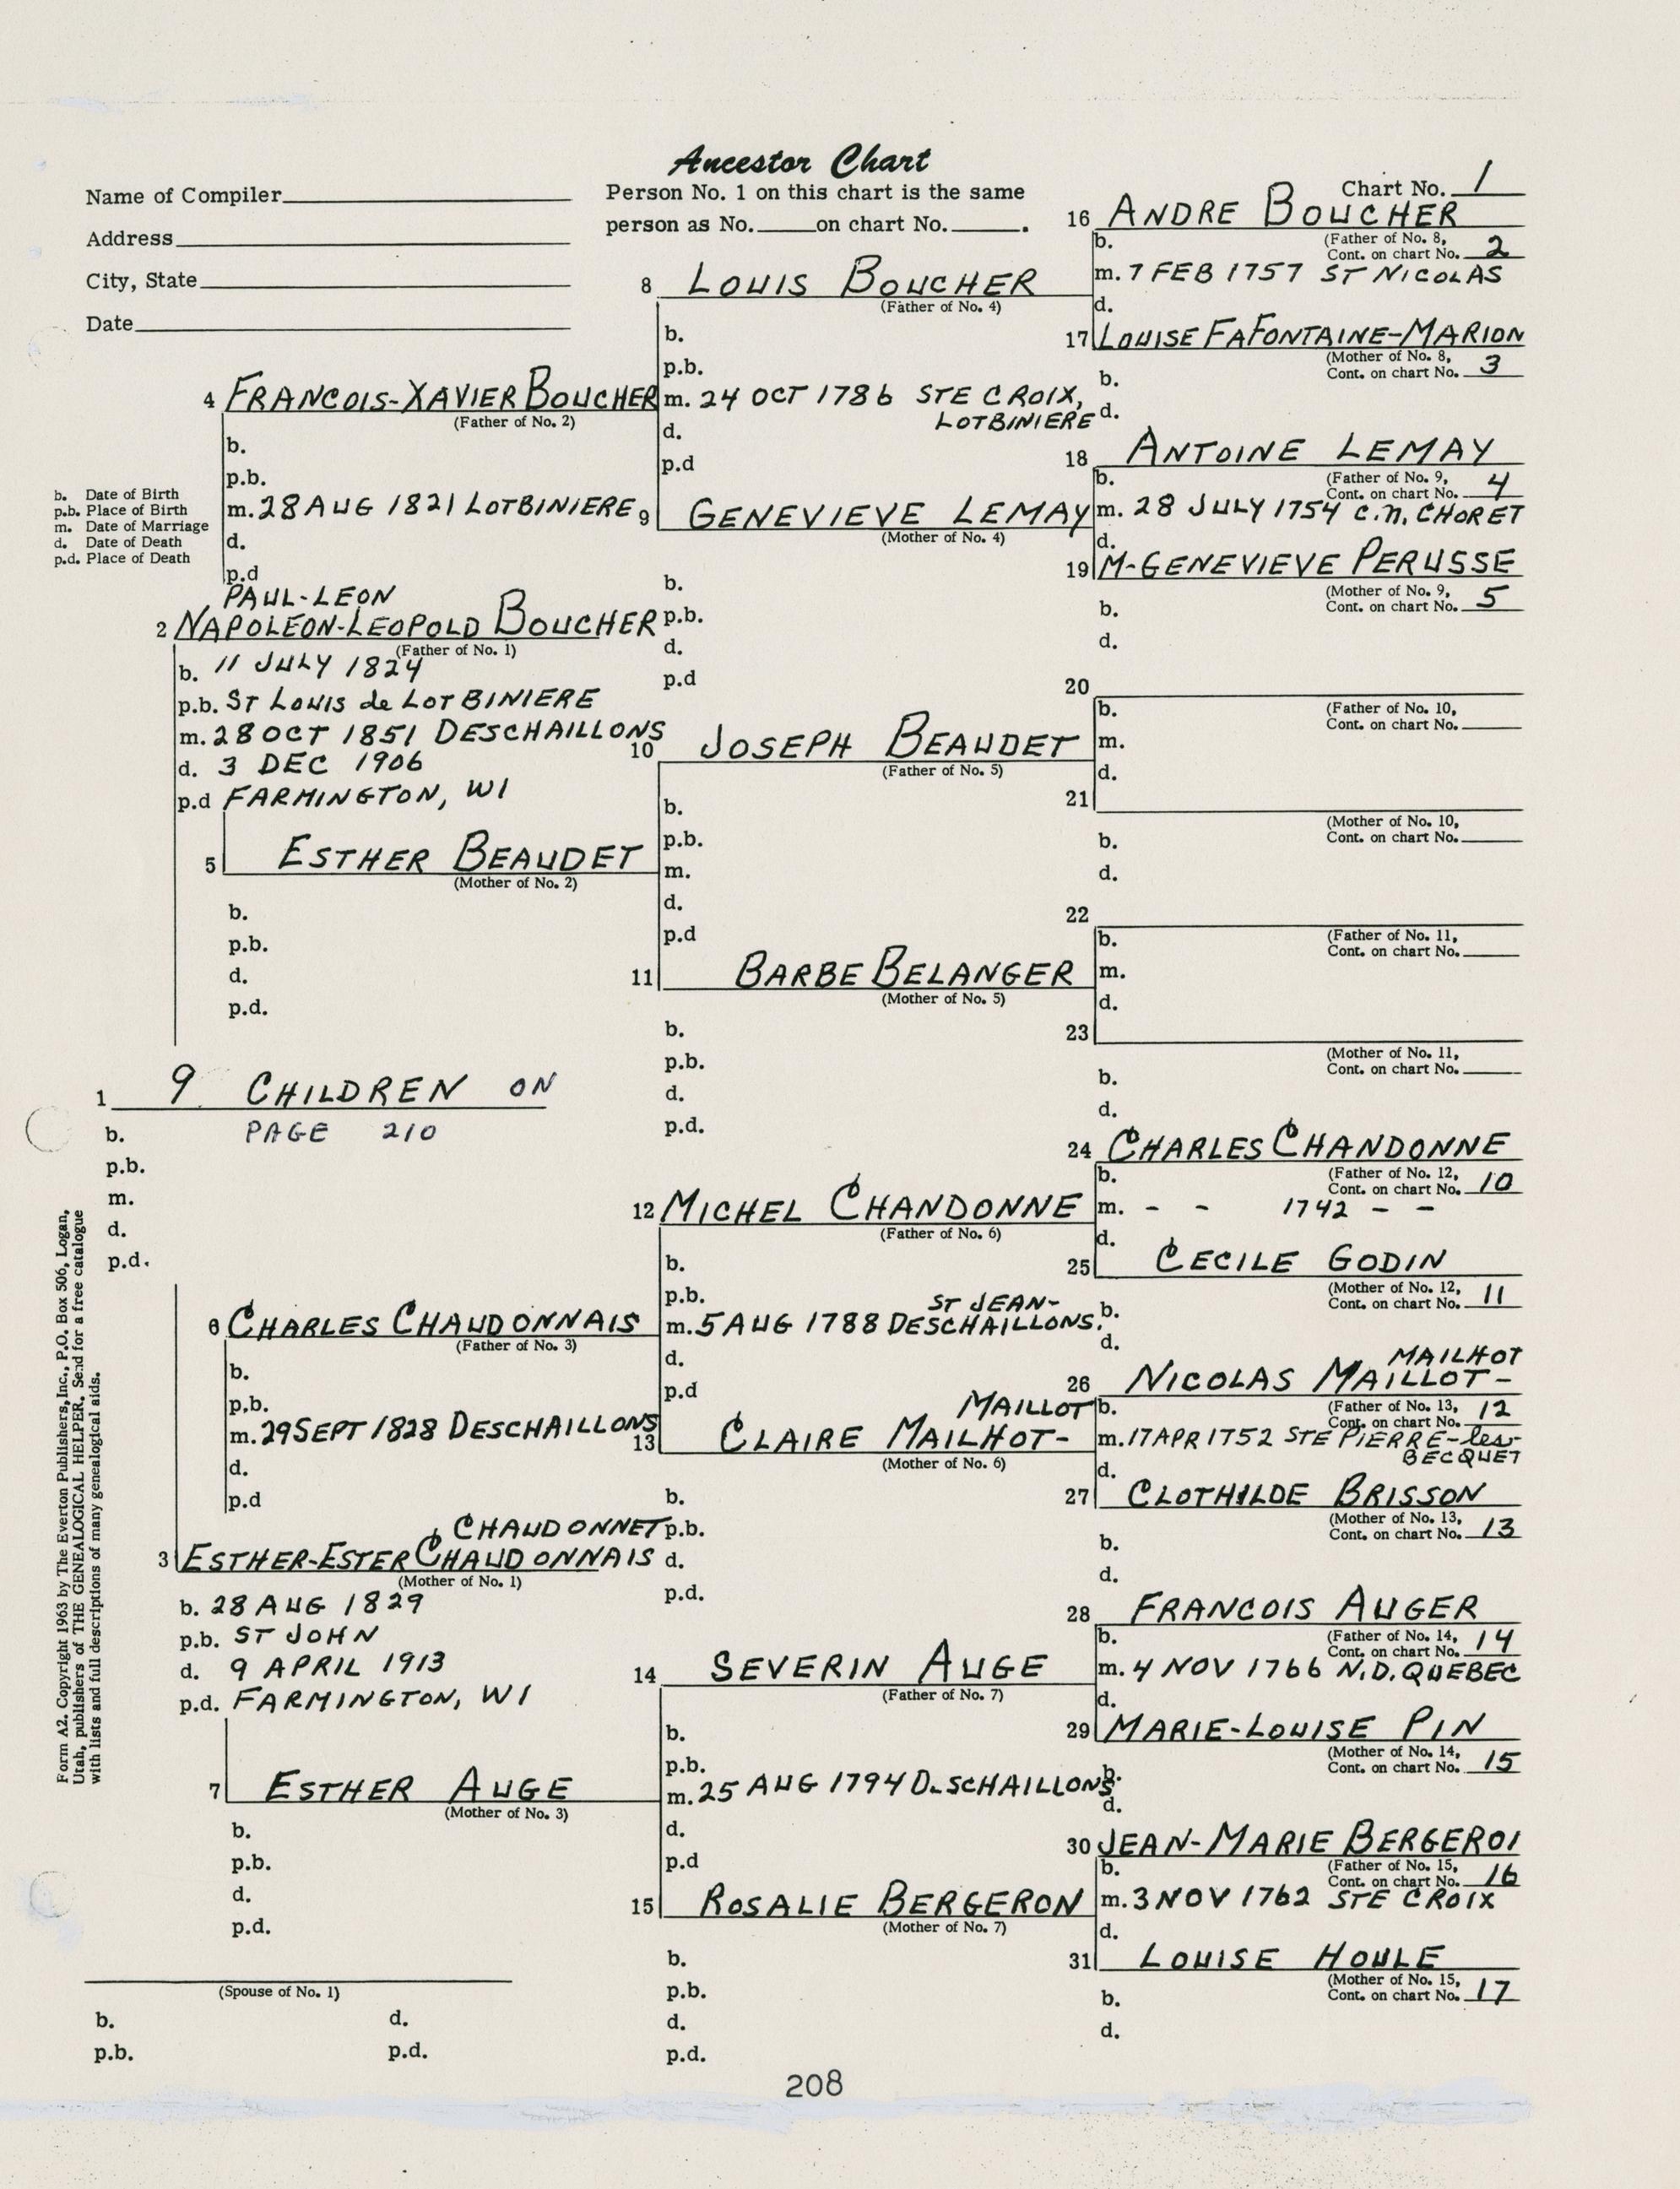 Ancestor Chart
Name of Compiler
Address
City, State
Date
Person No. 1 on this chart is the same
person as No. on chart No. .
Chart No. 1
b. Date of Birth
p.b. Place of Birth
m. Date of Marriage
d. Date of Death
p.d. Place of Death
1 9 CHILDREN ON
PAGE 210
b.
p.b.
m.
d.
p.d.
PAUL-LEON
2 NAPOLEON-LEOPOLD BOUCHER
(Father of No. 1)
b. 11 JULY 1824
p.b. ST LOUIS de LOTBINIERE
m. 28 OCT 1851 DESCHAILLONS
d. 3 DEC 1906
p.d FARMINGTON, WI
CHAUDONNET
3 ESTHER-ESTER CHAUDONNAIS
(Mother of No. 1)
b. 28 AUG 1829
p.b. ST JOHN
d. 9 APRIL 1913
p.d. FARMINGTON, WI
4 FRANCOIS-XAVIER BOUCHER
(Father of No. 2)
b.
p.b.
m. 28 AUG 1821 LOTBINIERE
d.
p.d
5 ESTHER BEAUDET
(Mother of No. 2)
b.
p.b.
d.
p.d.
6 CHARLES CHAUDONNAIS
(Father of No. 3)
b.
p.b.
m. 29 SEPT 1828 DESCHAILLONS
d.
p.d
7 ESTHER AUGE
(Mother of No. 3)
b.
p.b.
d.
p.d.
(Spouse of No. 1)
b. d.
p.b. p.d.
8 LOUIS BOUCHER
(Father of No. 4)
b.
p.b.
m. 24 OCT 1786 STE CROIX,
LOTBINIERE
d.
p.d
9 GENEVIEVE LEMAY
(Mother of No. 4)
b.
p.b.
d.
p.d
10 JOSEPH BEAUDET
(Father of No. 5)
b.
p.b.
m.
d.
p.d
11 BARBE BELANGER
(Mother of No. 5)
b.
p.b.
d.
p.d.
12 MICHEL CHANDONNE
(Father of No. 6)
b.
p.b.
ST JEAN-
m. 5 AUG 1788 DESCHAILLONS.
d.
p.d
MAILLOT
13 CLAIRE MAILHOT-
(Mother of No. 6)
b.
p.b.
d.
p.d.
14 SEVERIN AUGE
(Father of No. 7)
b.
p.b.
m. 25 AUG 1794 DESCHAILLONS
d.
p.d
15 ROSALIE BERGERON
(Mother of No. 7)
b.
p.b.
d.
p.d.
16 ANDRE BOUCHER
b. (Father of No. 8,
Cont. on chart No. 2
m. 7 FEB 1757 ST NICOLAS
d.
17 LOUISE FAFONTAINE-MARION
(Mother of No. 8,
Cont. on chart No. 3
b.
d.
18 ANTOINE LEMAY
b. (Father of No. 9,
Cont. on chart No. 4
m. 28 JULY 1754 C.N. CHORET
d.
19 M-GENEVIEVE PERUSSE
(Mother of No. 9,
Cont. on chart No. 5
b.
d.
20
b. (Father of No. 10,
Cont. on chart No.
m.
d.
21
(Mother of No. 10,
Cont. on chart No.
b.
d.
22
b. (Father of No. 11,
Cont. on chart No.
m.
d.
23
(Mother of No. 11,
Cont. on chart No.
b.
d.
24 CHARLES CHANDONNE
b. (Father of No. 12,
Cont. on chart No. 10
m. - - 1742 - -
d.
25 CECILE GODIN
(Mother of No. 12,
Cont. on chart No. 11
b.
d.
MAILHOT
26 NICOLAS MAILLOT-
b. (Father of No. 13,
Cont. on chart No. 12
m. 17 APR 1752 STE PIERRE-les-
BECQUET
d.
27 CLOTHILDE BRISSON
(Mother of No. 13,
Cont. on chart No. 13
b.
d.
28 FRANCOIS AUGER
b. (Father of No. 14,
Cont. on chart No. 14
m. 4 NOV 1766 N.D. QUEBEC
d.
29 MARIE-LOUISE PIN
(Mother of No. 14,
Cont. on chart No. 15
b.
d.
30 JEAN-MARIE BERGEROI
b. (Father of No. 15,
Cont. on chart No. 16
m. 3 NOV 1762 STE CROIX
d.
31 LOUISE HOULE
(Mother of No. 15,
Cont. on chart No. 17
b.
d.
Form A2. Copyright 1963 by The Everton Publishers, Inc., P.O. Box 506, Logan,
Utah, publishers of THE GENEALOGICAL HELPER. Send for a free catalogue
with lists and full descriptions of many genealogical aids.
208